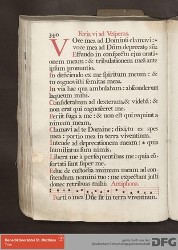 340 Feria vi ad Vesperas.
Voce mea ad Dominū clamavi:
voce mea ad Dñm deprecatꝰ sū.
Effundo in conspectu ejus orati-
onem meam: & tribulationem meā ante
ipsum pronuntio.
In deficiendo ex me spiritum meum: &
tu cognovisti semitas meas.
In via hac qua ambulabam: absconderunt
laqueum mihi.
Considerabam ad dexterā, & videbā: &
non erat qui cognosceret me.
Periit fuga a me: & non est qui requirat a
nimam meam.
Clamavi ad te Domine; dixi tu es spes
mea: portio mea in terra viventium.
Intende ad deprecationem meā: quia
humiliatus sum nimis.
Libera me a persequentibus me: quia cō-
fortati sunt super me.
Educ de custodia animam meam ad con-
fitendum nomini tuo: me expectant justi
donec retribuas mihi. Antiphona.
Portio mea Dñe sit in terra viventium.
Benediktinerabtei St. Matthias
Trier
DFG